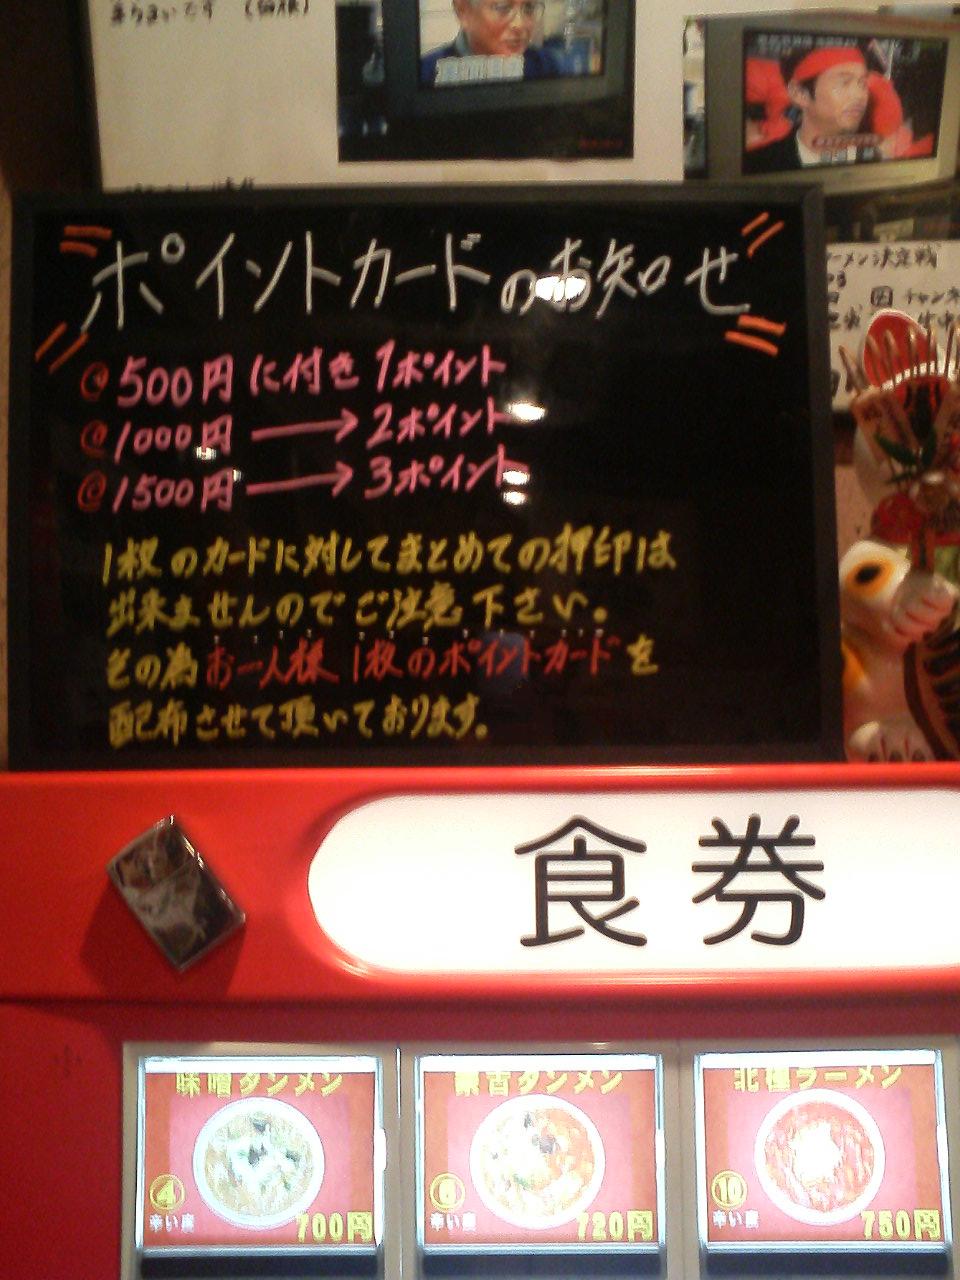 ーメン決定戦
ポイントカードのお知せ
@ 500円に付き1ポイント
@ 1000円 → 2ポイント
@ 1500円 → 3ポイント
1枚のカードに対してまとめての押印は
出来ませんのでご注意下さい。
その為お一人様1枚のポイントカードを
配布させて頂いております。
食券
味噌タンメン
4
辛い度
700円
蒙古タンメン
6
辛い度
720円
北極ラーメン
10
辛い度
750円